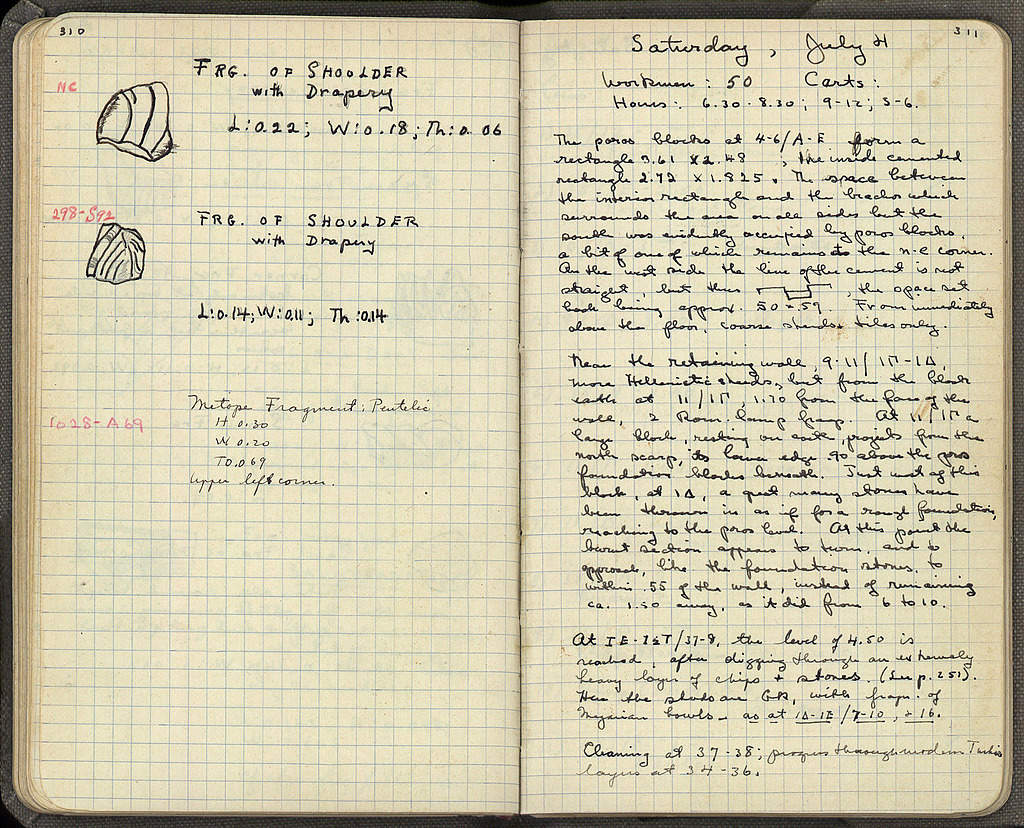 310
NC
FRG. OF SHOULDER
with Drapery
L:0.22; W:0.18; Th:0.06
298-S92
FRG. OF SHOULDER
with Drapery
L:0.14; W:0.11; Th:0.14
1028-A69
Metope Fragment: Pentelic
H 0.30
W 0.20
T 0.069
Upper left corner.
311
Saturday, July 4
Workmen: 50 Carts:
Hours: 6.30-8.30; 9-12; 3-6.
The poros blocks at 4-6/A-E form a
rectangle 3.61 x 2.48 ; the inside cemented
rectangle 2.72 x 1.825. The space between
the interior rectangle and the which
surrounds the area on all sides but the
south was evidently occupied by poros blocks,
a bit of one of which remains in the n-e corner.
On the west side the line of the cement is not
straight, but thus , the space set
back being approx. .50 x .59. From immediately
above the floor, coarse sherds + tiles only.
Near the retaining wall, 9-11/ΙΓ-ΙΔ,
more Hellenistic sherds, but from the black
earth at 11/ΙΓ, 1.70 from the face of the
wall, 2 Rom. lamp frags. At 11/ΙΓ a
large block, resting on earth, projects from the
north scarp, its lower edge .90 above the poros
foundation blocks beneath. Just west of this
block, at ΙΔ, a great many stones have
been thrown in as if for a rough foundation,
reaching to the poros level. At this point the
burnt section appears to turn, and to
approach, like the foundation stones, to
within .55 of the wall, instead of remaining
ca. 1.50 away, as it did from 6 to 10.
At ΙΕ-ΙΣΤ/37-8, the level of 4.50 is
reached, after digging through an extremely
heavy layer of chips + stones. (See p. 251).
Here the sherds are GR, with frags. of
Megarian bowls - as at ΙΔ-ΙΕ/7-10, + 16.
Cleaning at 37-38; progress through modern Turkish
layers at 34-36.